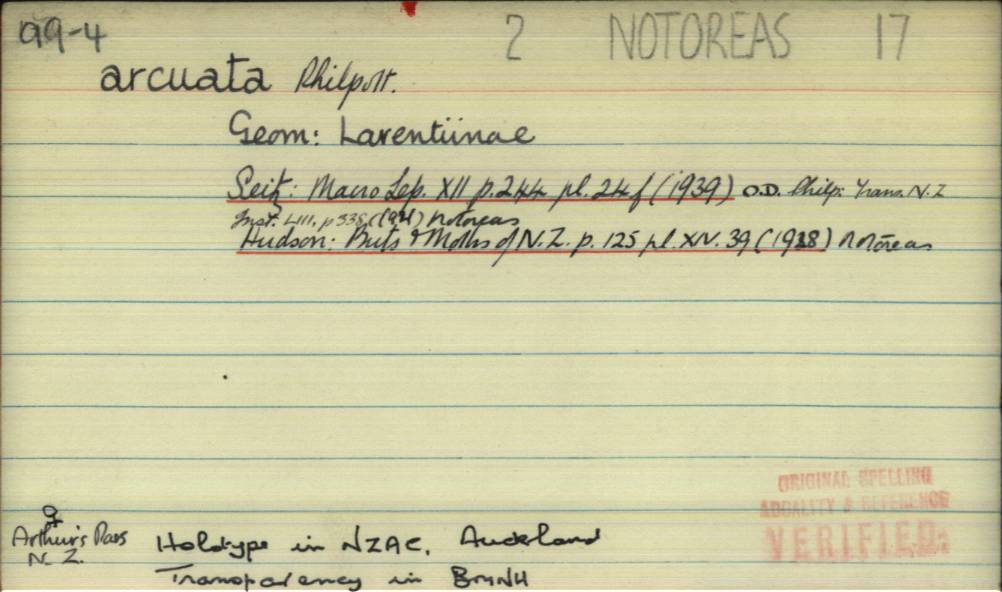 99-4 2 NOTOREAS 17
arcuata Philpott.
Geom: Larentiinae
Seitz: Macro Lep. XII p.244 pl. 24 f (1939) O.D. Philp: Trans. N.Z
Inst. LIII, p 338, (1921) Notoreas
Hudson: Buts & Moths of N.Z. p. 125 pl. XIV. 39 (1928) Notoreas
ORIGINAL SPELLING
LOCALITY & REFERENCE
VERIFIED
♀
Arthur's Pass
N. Z.
Holotype in NZAC, Auckland
Transparency in BMNH